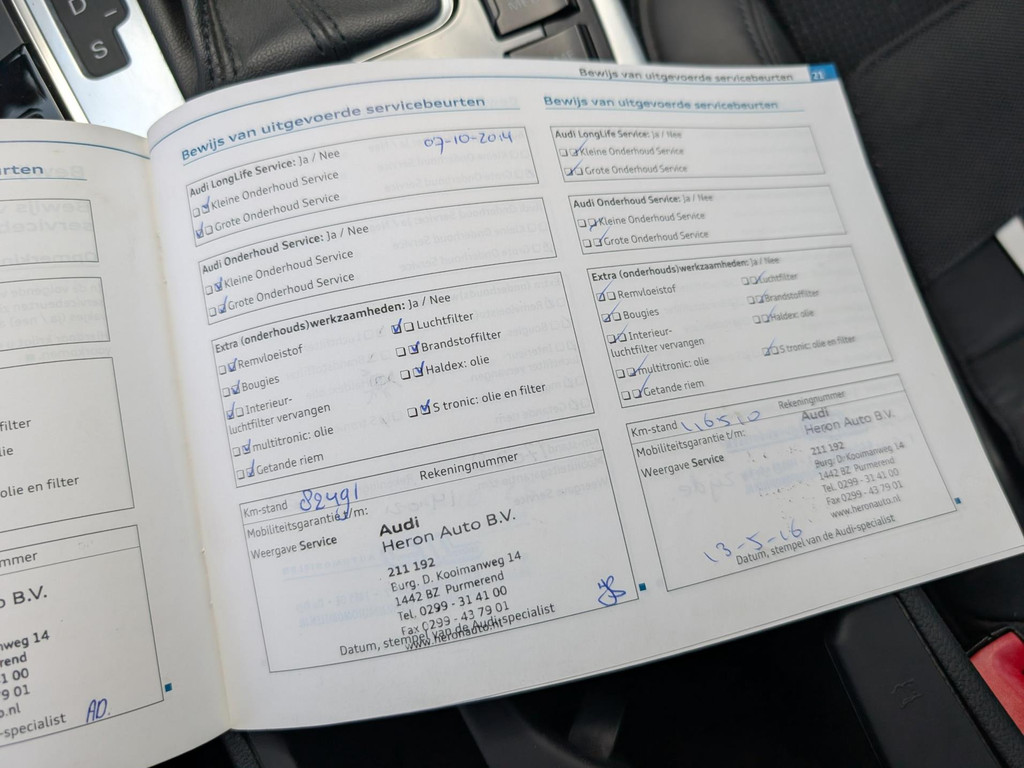 D
S
rten
filter
lie
olie en filter
mmer
o B.V.
nweg 14
rend
1 00
9 01
o.nl
-specialist
AD.
Bewijs van uitgevoerde servicebeurten
07-10-2014
Audi LongLife Service: Ja / Nee
Kleine Onderhoud Service
Grote Onderhoud Service
Audi Onderhoud Service: Ja / Nee
Kleine Onderhoud Service
Grote Onderhoud Service
Extra (onderhouds)werkzaamheden: Ja / Nee
Remvloeistof
Luchtfilter
Bougies
Brandstoffilter
Interieur-
luchtfilter vervangen
Haldex: olie
multitronic: olie
S tronic: olie en filter
Getande riem
Km-stand 82491 Rekeningnummer
Mobiliteitsgarantie t/m:
Weergave Service
Audi
Heron Auto B.V.
211 192
Burg. D. Kooimanweg 14
1442 BZ Purmerend
Tel. 0299 - 31 41 00
Fax 0299 - 43 79 01
www.heronauto.nl
Datum, stempel van de Audi-specialist
Bewijs van uitgevoerde servicebeurten 21
Bewijs van uitgevoerde servicebeurten
Audi LongLife Service: Ja / Nee
Kleine Onderhoud Service
Grote Onderhoud Service
Audi Onderhoud Service: Ja / Nee
Kleine Onderhoud Service
Grote Onderhoud Service
Extra (onderhouds)werkzaamheden: Ja / Nee
Remvloeistof
Luchtfilter
Bougies
Brandstoffilter
Interieur-
luchtfilter vervangen
Haldex: olie
multitronic: olie
S tronic: olie en filter
Getande riem
Km-stand 116510 Rekeningnummer
Mobiliteitsgarantie t/m:
Weergave Service
Audi
Heron Auto B.V.
211 192
Burg. D. Kooimanweg 14
1442 BZ Purmerend
Tel. 0299 - 31 41 00
Fax 0299 - 43 79 01
www.heronauto.nl
13-5-16
Datum, stempel van de Audi-specialist